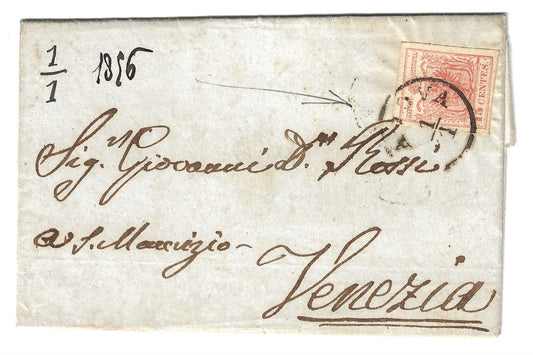 1/1 1856
15 CENTES.
VA
1/1
Sig.r Giovanni D.r Rossi
a S. Maurizio
Venezia